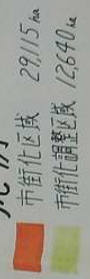 市街化区域 29,115ha
市街化調整区域 12,640ha